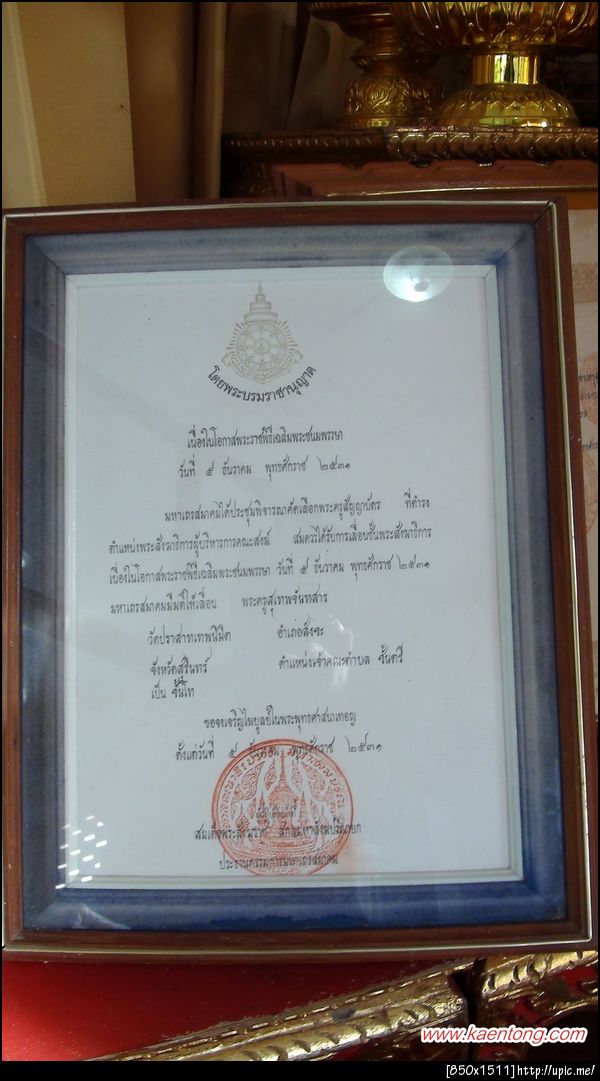 โดยพระบรมราชานุญาต
เนื่องในโอกาสพระราชพิธีเฉลิมพระชนมพรรษา
วันที่ ๕ ธันวาคม พุทธศักราช ๒๕๓๑
มหาเถรสมาคมได้ประชุมพิจารณาคัดเลือกพระครูสัญญาบัตร ที่ดำรง
ตำแหน่งพระสังฆาธิการผู้บริหารการคณะสงฆ์ สมควรได้รับการเลื่อนชั้นพระสังฆาธิการ
เนื่องในโอกาสพระราชพิธีเฉลิมพระชนมพรรษา วันที่ ๕ ธันวาคม พุทธศักราช ๒๕๓๑
มหาเถรสมาคมมีมติให้เลื่อน พระครูสุเทพจันทสาร
วัดปราสาทเทพนิมิต อำเภอสังขะ
จังหวัดสุรินทร์ ตำแหน่งเจ้าคณะตำบล ชั้นตรี
เป็น ชั้นโท
ขอจงเจริญไพบูลย์ในพระพุทธศาสนาเทอญ
ตั้งแต่วันที่ ๕ ธันวาคม พุทธศักราช ๒๕๓๑
สมเด็จพระสังฆราช สกลมหาสังฆปริณายก
ประธานกรรมการมหาเถรสมาคม
www.kaentong.com
[850x1511]http://upic.me/